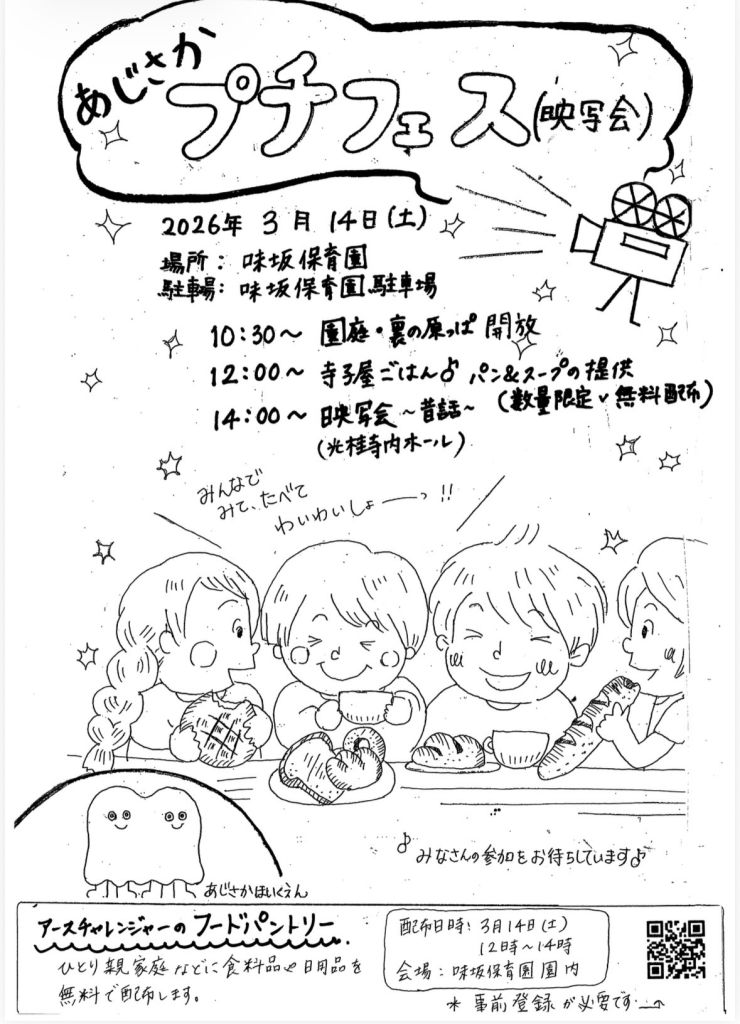 あじさか
プチフェス(映写会)
2026年 3月 14日(土)
場所: 味坂保育園
駐車場: 味坂保育園駐車場
10:30～ 園庭・裏の原っぱ 開放
12:00～ 寺子屋ごはん♪ パン&スープの提供
(数量限定、無料配布)
14:00～ 映写会 ～昔話～
(光桂寺内ホール)
みんなで
みて、たべて
わいわいしょーーっ!!
♪みなさんの参加をお待ちしています♪
あじさかほいくえん
アースチャレンジャーの フードパントリー
ひとり親家庭などに食料品や日用品を
無料で配布します。
配布日時: 3月14日(土)
12時～14時
会場: 味坂保育園 園内
＊ 事前登録が必要です→